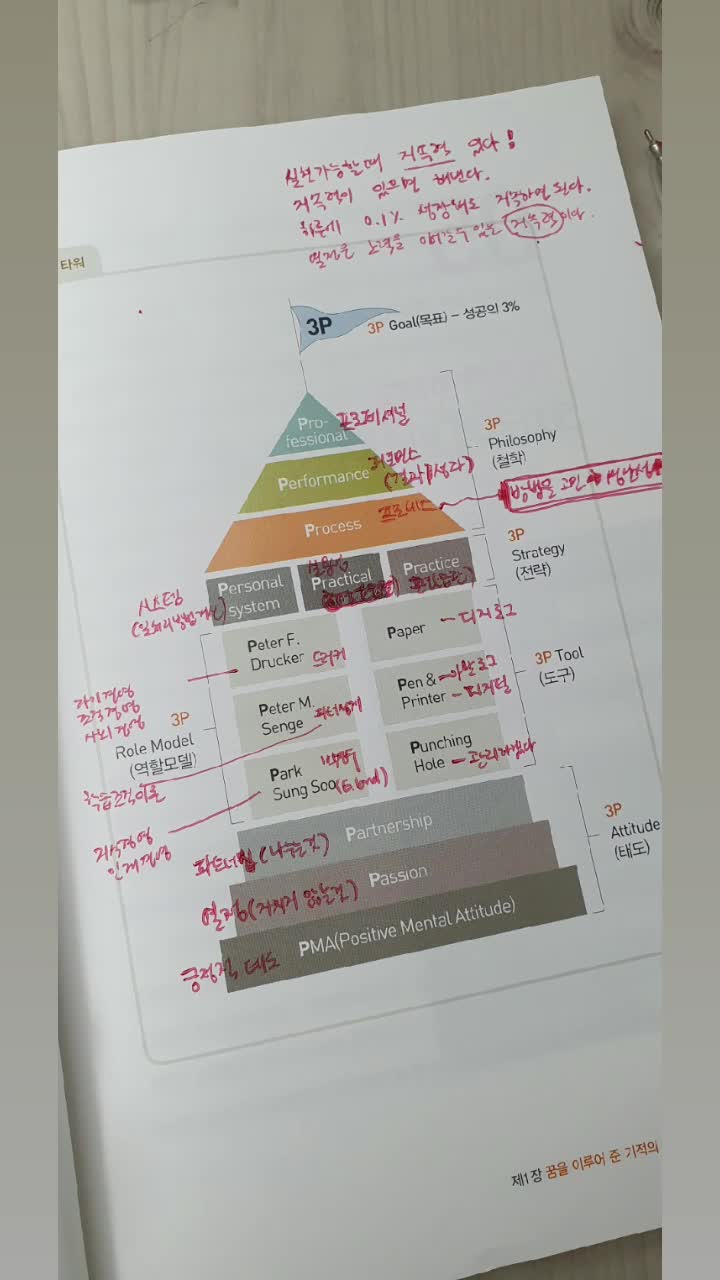 실천가능할때 지속력 있다!
지속력이 있으면 해낸다.
하루에 0.1% 성장해도 지속하면 된다.
열정은 노력을 이어갈수 있는 지속력이다.
타워
3P
3P Goal(목표) – 성공의 3%
Pro-
fessional
프로페셔널
3P
Philosophy
(철학)
Performance
퍼포먼스
(결과/성과)
Process
프로세스
방법을 고민
3P
Strategy
(전략)
Personal
system
Practical
실용성
Practice
시스템
(일처리방법개선)
Peter F.
Drucker
드러커
Paper
디지로그
3P Tool
(도구)
자기경영
조직경영
사회경영
3P
Role Model
(역할모델)
Peter M.
Senge
피터셍게
Pen &
Printer
아날로그
디지털
Park
Sung Soo
박성수
(E.land)
Punching
Hole
관리하겠다
학습조직이론
지식경영
인재경영
Partnership
파트너쉽 (나누는것)
3P
Attitude
(태도)
Passion
열정(지치지 않는것)
PMA(Positive Mental Attitude)
긍정적 태도
제1장 꿈을 이루어 준 기적의